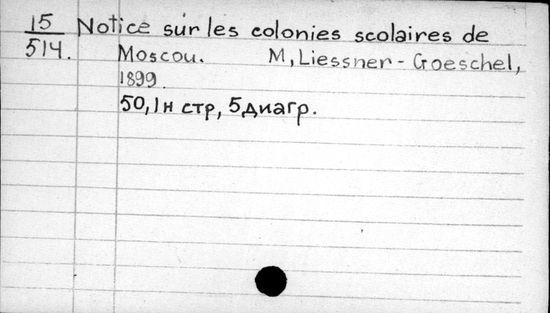 15 Notice sur les colonies scolaires de
514. Moscou. M, Liessner-Goeschel,
1899.
50, 1н стр, 5 диагр.